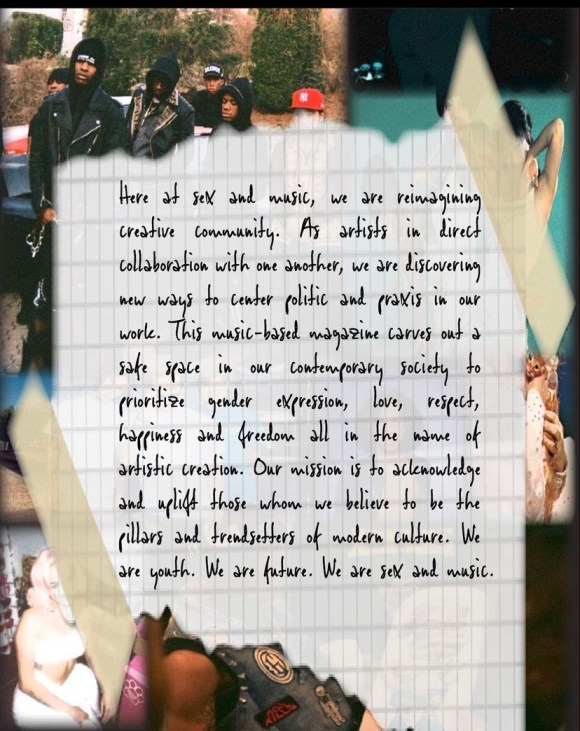 Here at sex and music, we are reimagining
creative community. As artists in direct
collaboration with one another, we are discovering
new ways to center politic and praxis in our
work. This music-based magazine carves out a
safe space in our contemporary society to
prioritize gender expression, love, respect,
happiness and freedom all in the name of
artistic creation. Our mission is to acknowledge
and uplift those whom we believe to be the
pillars and trendsetters of modern culture. We
are youth. We are future. We are sex and music.